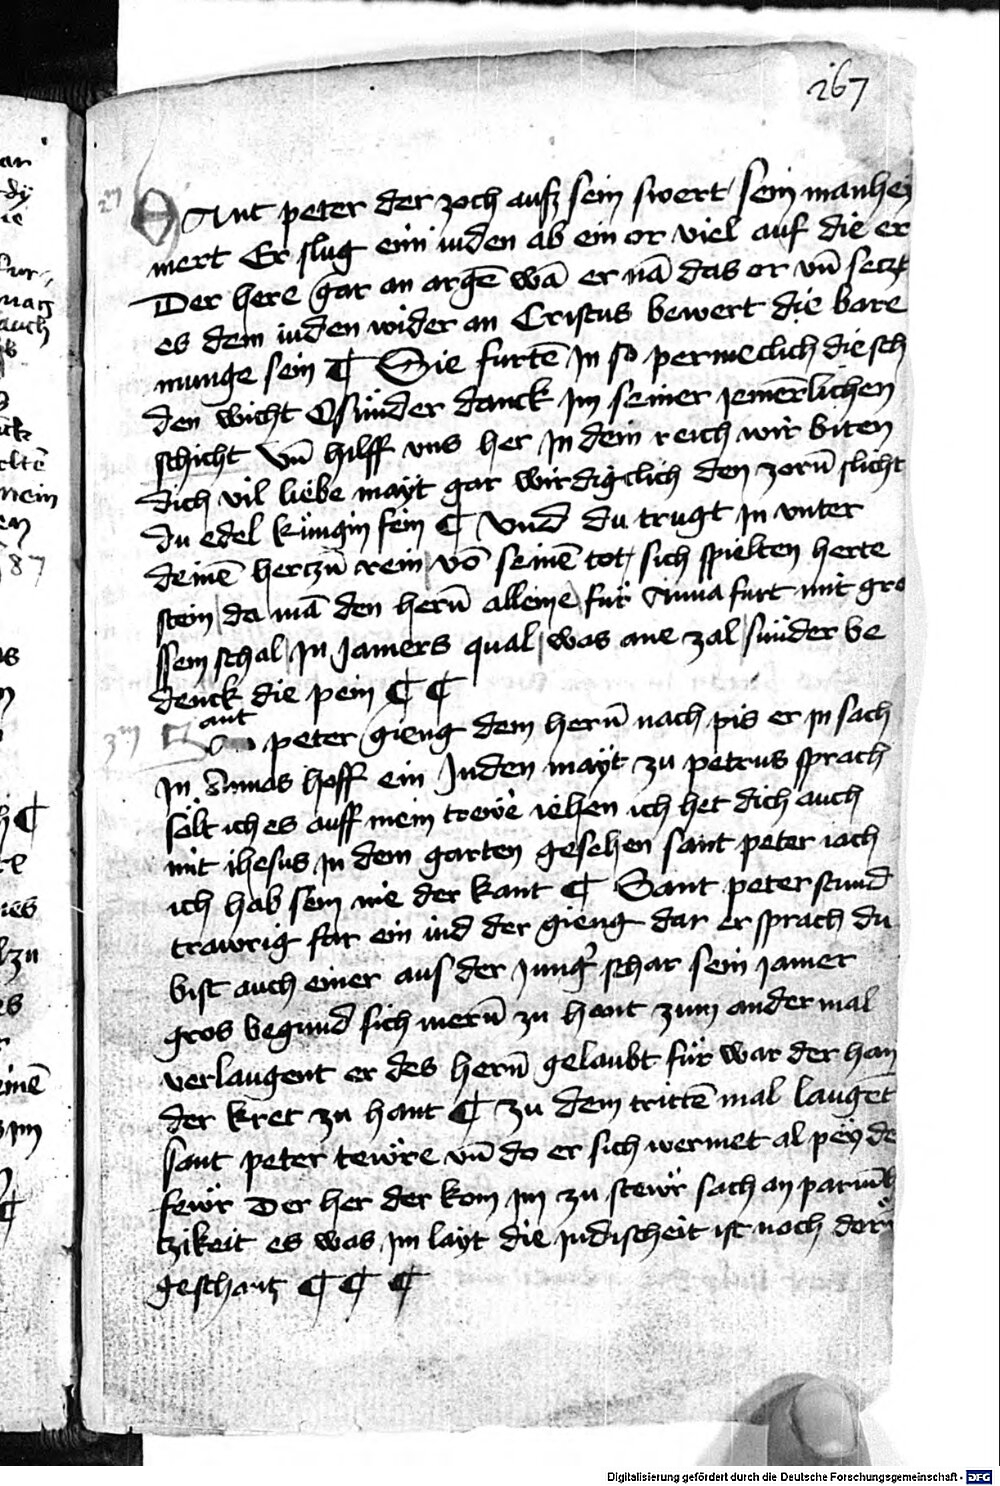 267
Sant peter der zoch aufz sein swert sein manhei
mert Er slug eim iuden ab ein or viel auf die er
Der here gar an argē wā er nā das or vn̄ seczt
es dem iuden wider an Cristus bewert die bare
munge sein ¶ Sie furtē jn so permeclich die sch
den wicht O sünder danck jm seiner jemerlichen
schicht vn̄ hilff vns her jn dein reich wir biten
dich vil liebe mayt gar wirdigclich den zorn̄ slicht
du edel küngin fein ¶ vnd du trugt jn vnter
deinē herczn̄ rein vō seinē tot sich spielten herte
stein da mā den hern̄ alleine für Anna furt mit gro
ssem schal jn jamers qual was ane zal sünder be
denck die pein ¶ ¶
Sant peter gieng dem hern̄ nach pis er jn sach
jn Annas hoff ein Juden mayt zu petrus sprach
solt ich es auff mein trewe iehen ich het dich auch
mit ihesus jn dem garten gesehen sant peter iach
ich hab sein nie der kant ¶ Sant peter stund
trawrig far ein iud der gieng dar er sprach du
bist auch einer aus der jungr̄ schar sein jamer
gros begund sich mern̄ zu hant zum ander mal
verlaugent er des hern̄ gelaubt für war der han
der kret zu hant ¶ zu dem trittē mal lauget
sant peter tewre vn̄ do er sich wermet al pey de
fewr Der her der kom jm zu stewr sach an parmh
tzikeit es was jm layt die judischeit ist noch dorū
geschantz ¶ ¶ ¶
87
Digitalisierung gefördert durch die Deutsche Forschungsgemeinschaft - DFG